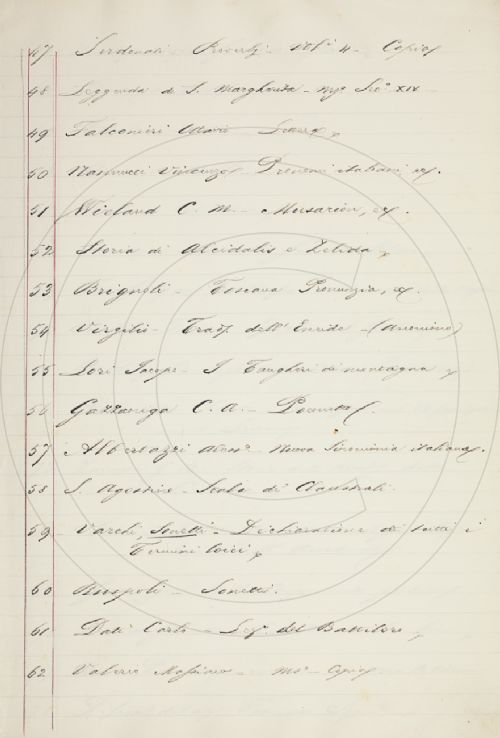 47 Serdonati - Proverbj - Vol. 4 - Copia
48 Leggenda di S. Margherita - Ms. Sec. XIV -
49 Falconieri Ottavio - Lettere
50 Nannucci Vincenzo - italiani
51 Wieland C. M. - Musarion,
52 Storia di Alcidalis e Zelida
53 Brignoli - Toscana Pronunzia,
54 Virgilio - Trad. dell' Eneide - (Anonimo)
55 Lori Jacopo - I Funghi di montagna
56 Gazzaniga C. A. -
57 Albertazzi - Nuova Sinonimia italiana
58 S. Agostino - Scala di Claustrali
59 Varchi, Sonetti - Dichiarazione di tutti i
Termini loici
60 Ruspoli - Sonetti.
61 Dati Carlo - del Battilore
62 Valerio Massimo - Ms. - Copia